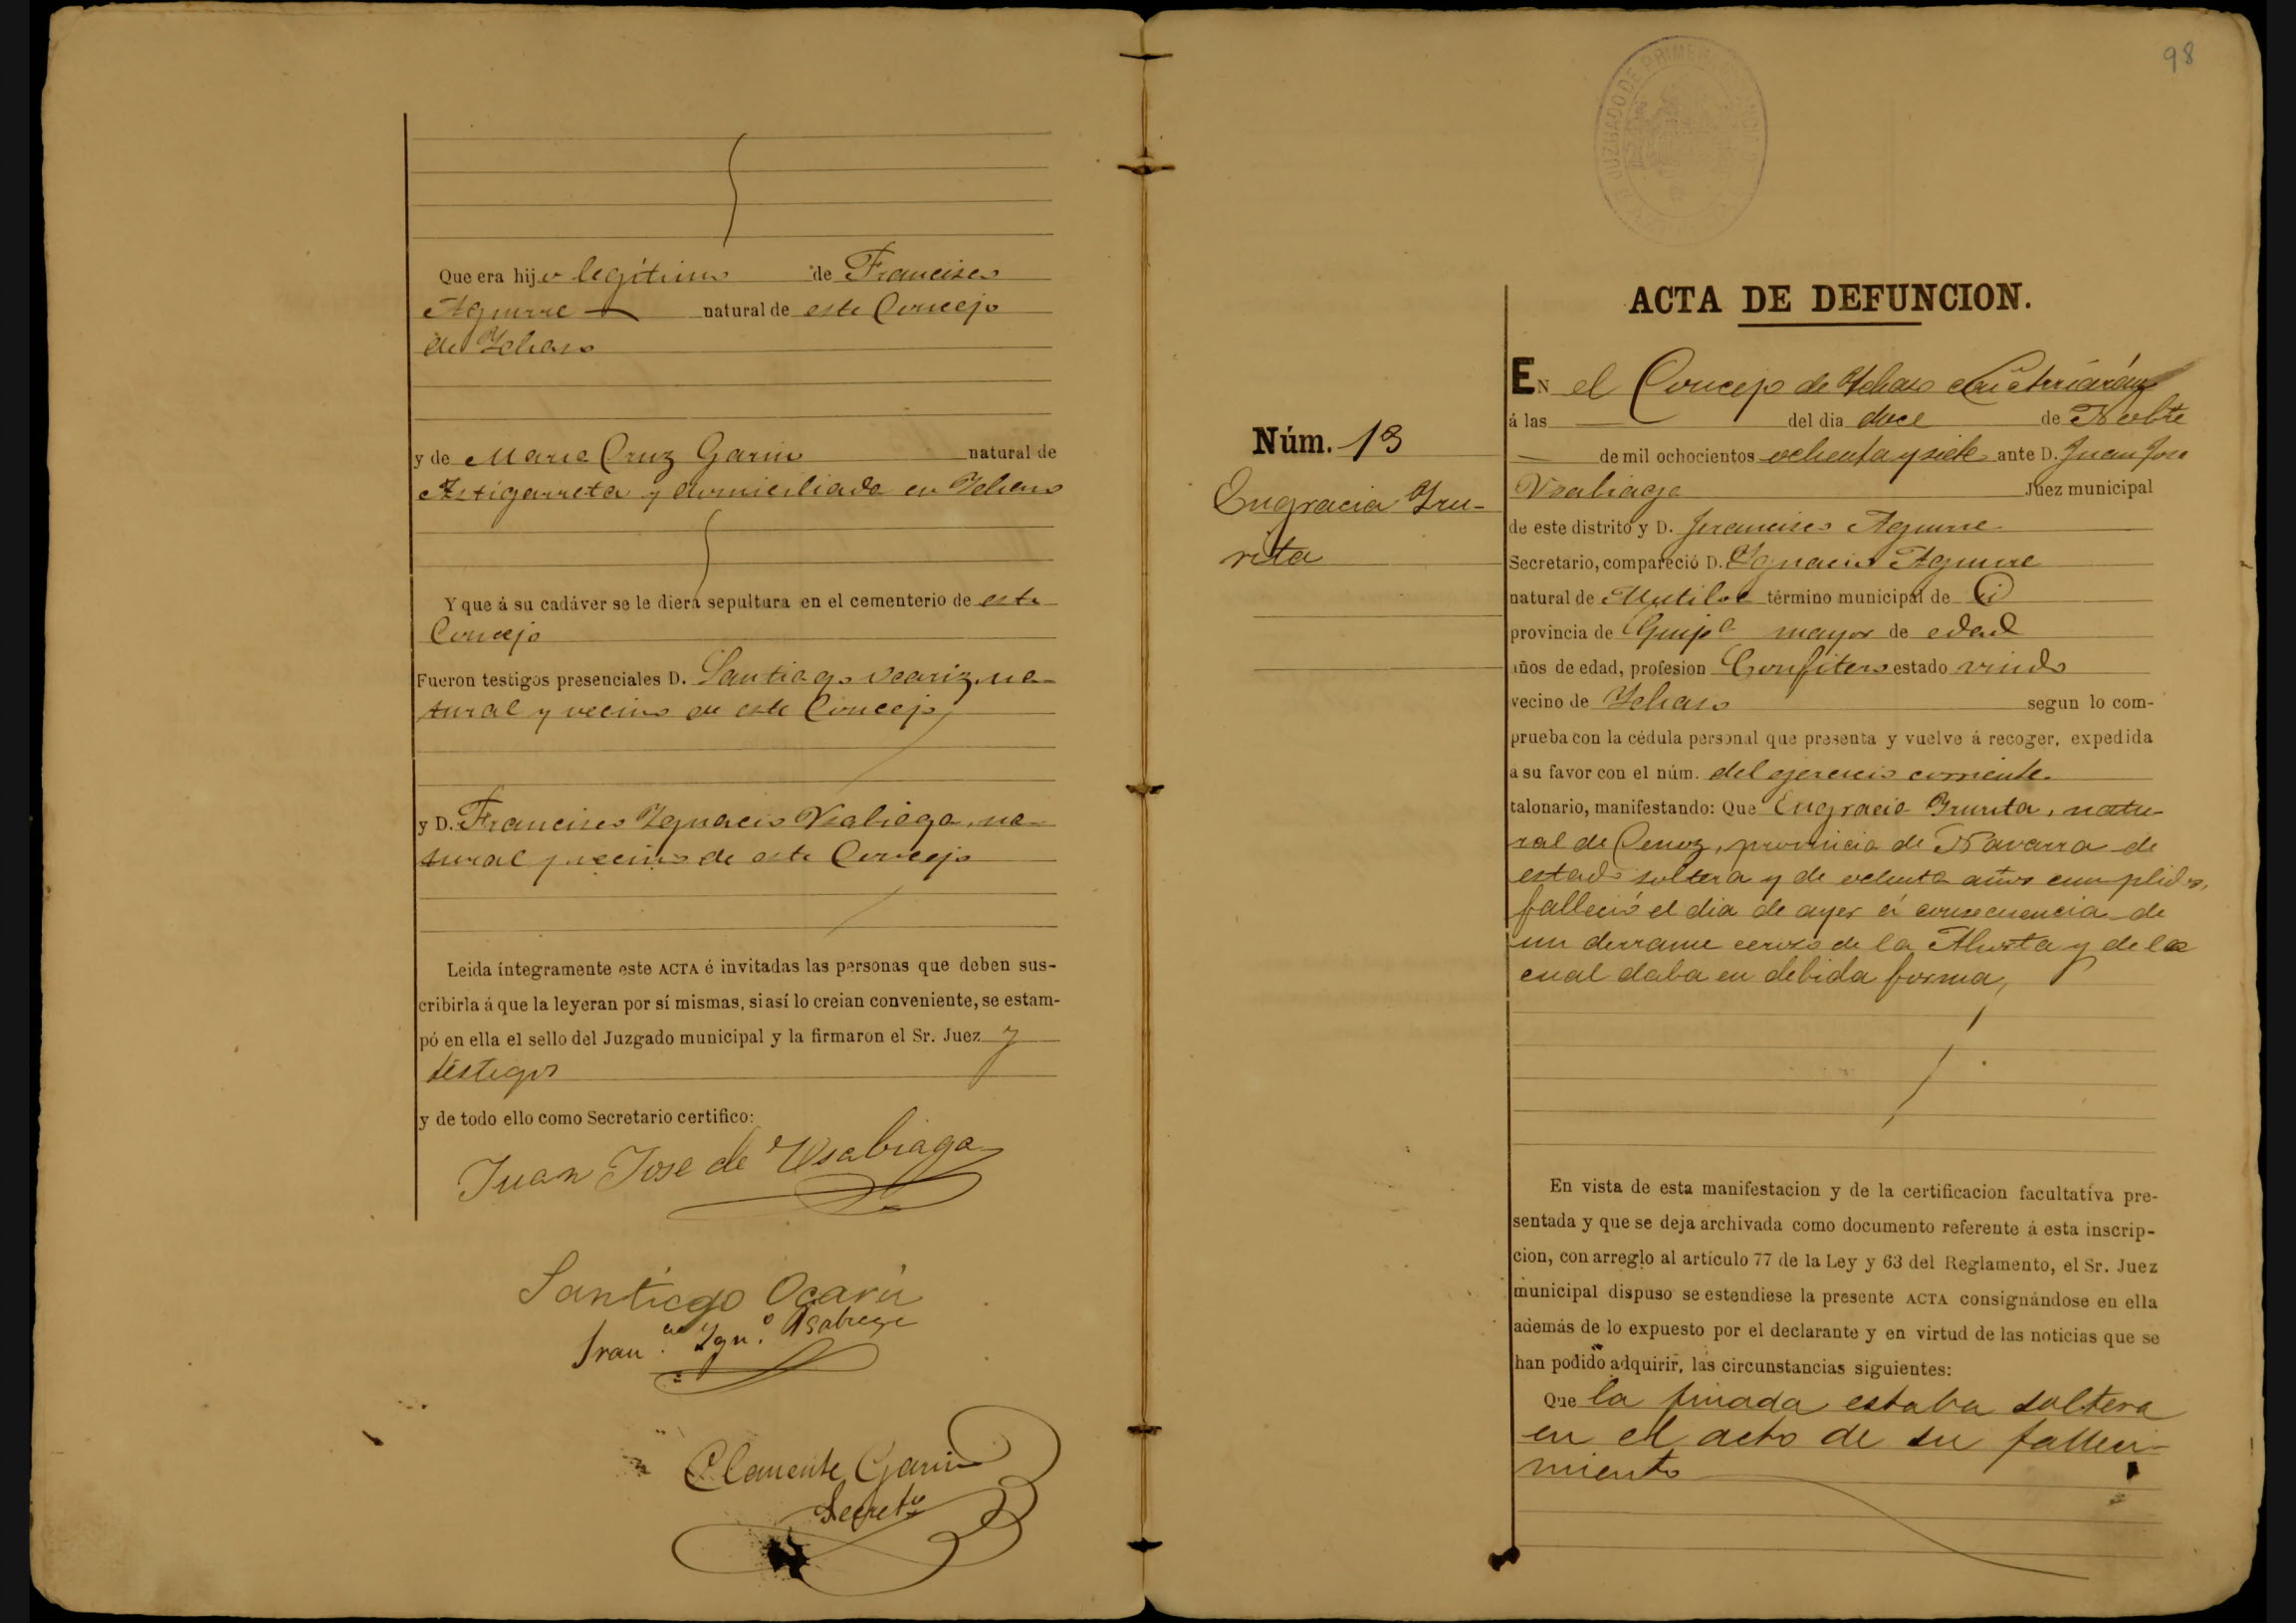 Que era hijo legítimo de Francisco
Aguirre natural de este Concejo
de Ychaso
y de Maria Cruz Garin natural de
Astigarreta y domiciliada en Ychaso
Y que á su cadáver se le diera sepultura en el cementerio de este
Concejo
Fueron testigos presenciales D. Santiago Ocariz, na-
tural y vecino de este Concejo
y D. Francisco Ygnacio Usabiaga, na-
tural y vecino de este Concejo
Leida íntegramente este ACTA é invitadas las personas que deben sus-
cribirla á que la leyeran por sí mismas, si así lo creian conveniente, se estam-
pó en ella el sello del Juzgado municipal y la firmaron el Sr. Juez y
testigos
y de todo ello como Secretario certifico:
Juan Jose de Usabiaga
Santiago
Fran.co Ygn.o Usabiaga
Clemente Garin
Secret.o
98
JUZGADO DE PRIMERA
ACTA DE DEFUNCION.
Núm. 13
Engracia Yru-
rita
EN el Concejo de Ychaso
á las del dia doce de Nobre
de mil ochocientos ochenta y siete ante D. Juan Jose
Usabiaga Juez municipal
de este distrito y D. Francisco Aguirre
Secretario, compareció D. Ygnacio Aguirre
natural de Mutiloa término municipal de id
provincia de Guipa mayor de edad
años de edad, profesion Confitero estado viudo
vecino de Ychaso segun lo com-
prueba con la cédula personal que presenta y vuelve á recoger, expedida
a su favor con el núm. del ejercicio corriente.
talonario, manifestando: Que Engracia Yrurita, natu-
ral de provincia de Navarra de
estado soltera y de ochenta años cumplidos,
falleció el dia de ayer á consecuencia de
un derrame seroso de la Ahorta y de la
cual daba en debida forma,
En vista de esta manifestacion y de la certificacion facultativa pre-
sentada y que se deja archivada como documento referente á esta inscrip-
cion, con arreglo al artículo 77 de la Ley y 63 del Reglamento, el Sr. Juez
municipal dispuso se estendiese la presente ACTA consignándose en ella
además de lo expuesto por el declarante y en virtud de las noticias que se
han podido adquirir, las circunstancias siguientes:
Que la finada estaba soltera
en el acto de su falleci-
miento